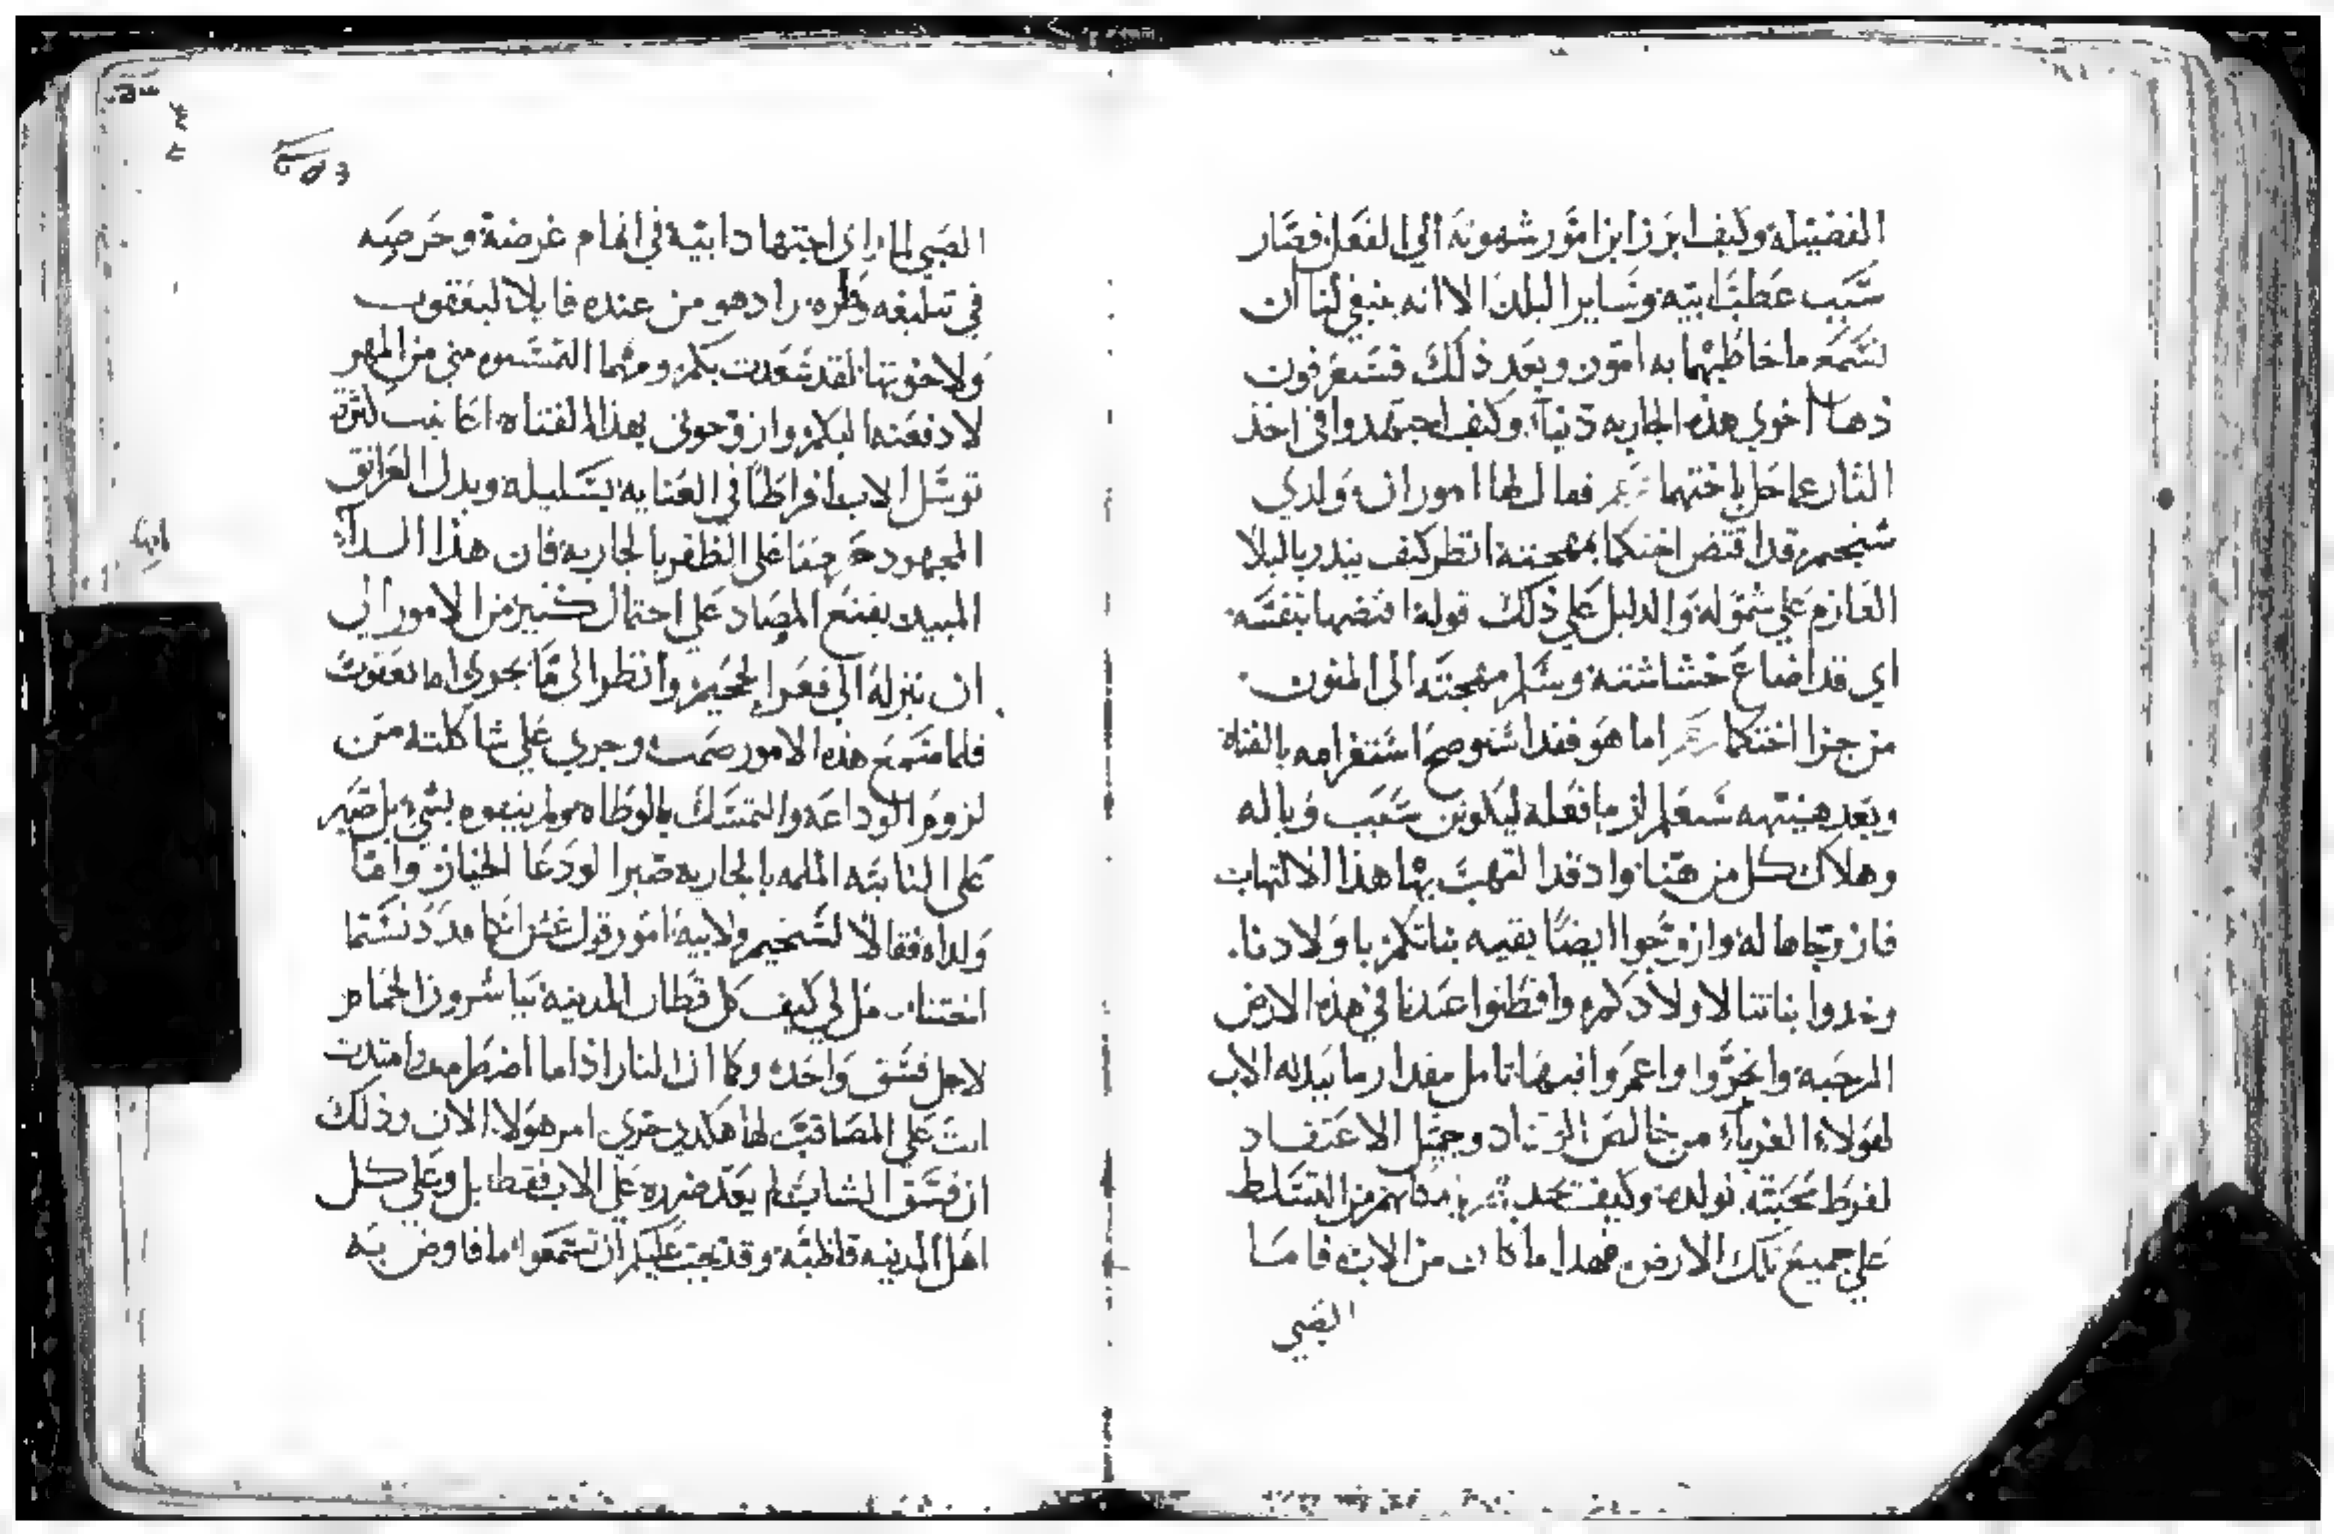 الفضيله وكيف ابرز ابن امور شهوته الي الفعل فصار
سبب عطب ابيه وساير البلد الا انه ينبغي لنا ان
نسمع ما خاطبهما به امور وبعد ذلك فستعرفون
دها اخوي هذه الجاريه دنيا وكيف اجتهدوا في اخذ
الثار عما حل باختهما فقال لها امور ان ولدي
شخيم قد اقتنص اختكما بمهجته انظر كيف ينذر بالبلا
العازم علي شموله والدليل علي ذلك قوله اقتنصها بنفسه
اي قد اضاع حشاشته وسلم مهجته الي المنون
من جزا اختكما اما هو فقد استوضح استغرامه بالفتاة
وبعد هنيهه سنعلم ان ما فعله ليكونن سبب وباله
وهلاك كل من هنا واد قد التهب بها هذا الالتهاب
فازوجاها له وازوجوا ايضا بقيه بناتكم باولادنا
وخدوا بناتنا لاولادكم واقطنوا عندنا في هذه الارض
الرحبه واتجروا واعمروا فيها تامل مقدار ما يبدله الاب
لهولاء الغرباء من خالص الوداد وجميل الاعتقاد
لفرط محبته لولده وكيف مكنهم من التسلط
علي جميع تلك الارض فهدا ما كان من الاب فاما
الصبي
الصبي لما راي اجتهاد ابيه في اتمام غرضه وحرصه
في تبليغه وطره زاد هو من عنده قايلا ليعقوب
ولاخوتها لقد سعدت بكم ومهما التمستموه مني من المهر
لادفعنه اليكم وازوجوني بهذه الفتاه اعاينت كثرة
توسل الاب افراطا في العنايه بسليله وبدل العرايق
المجهود حرصا علي الظفر بالجاريه فان هذا الدا
المبيد يقنع المصاد علي احتمال كثير من الامور الي
ان ينزله الي قعر الجحيم وانظر الي ما يجري اما يعقوب
فلما سمع هذه الامور صمت وجري علي شاكلته من
لزوم الوداعه والتمسك بالوطاه ولم ينبه بشي بل صبر
علي النايبه الملمه بالجاريه صبر الودعا الخيار واما
ولداه فقالا لشخيم ولابيه امور قول غش انكما قد دنستما
اختنا قل لي كيف كل قطان المدينه يباشرون الحمام
لاجل فسق واحد وكما ان النار اذا ما اضطرمت وامتدت
اتت علي المصاقب لها هكدي جري امر هولا الان وذلك
ان فسق الشاب لم يعد ضرره علي الاب فقط بل وعلي كل
اهل المدينه قاطبه وقد يجب عليكم ان تسمعوا ما فاوض به